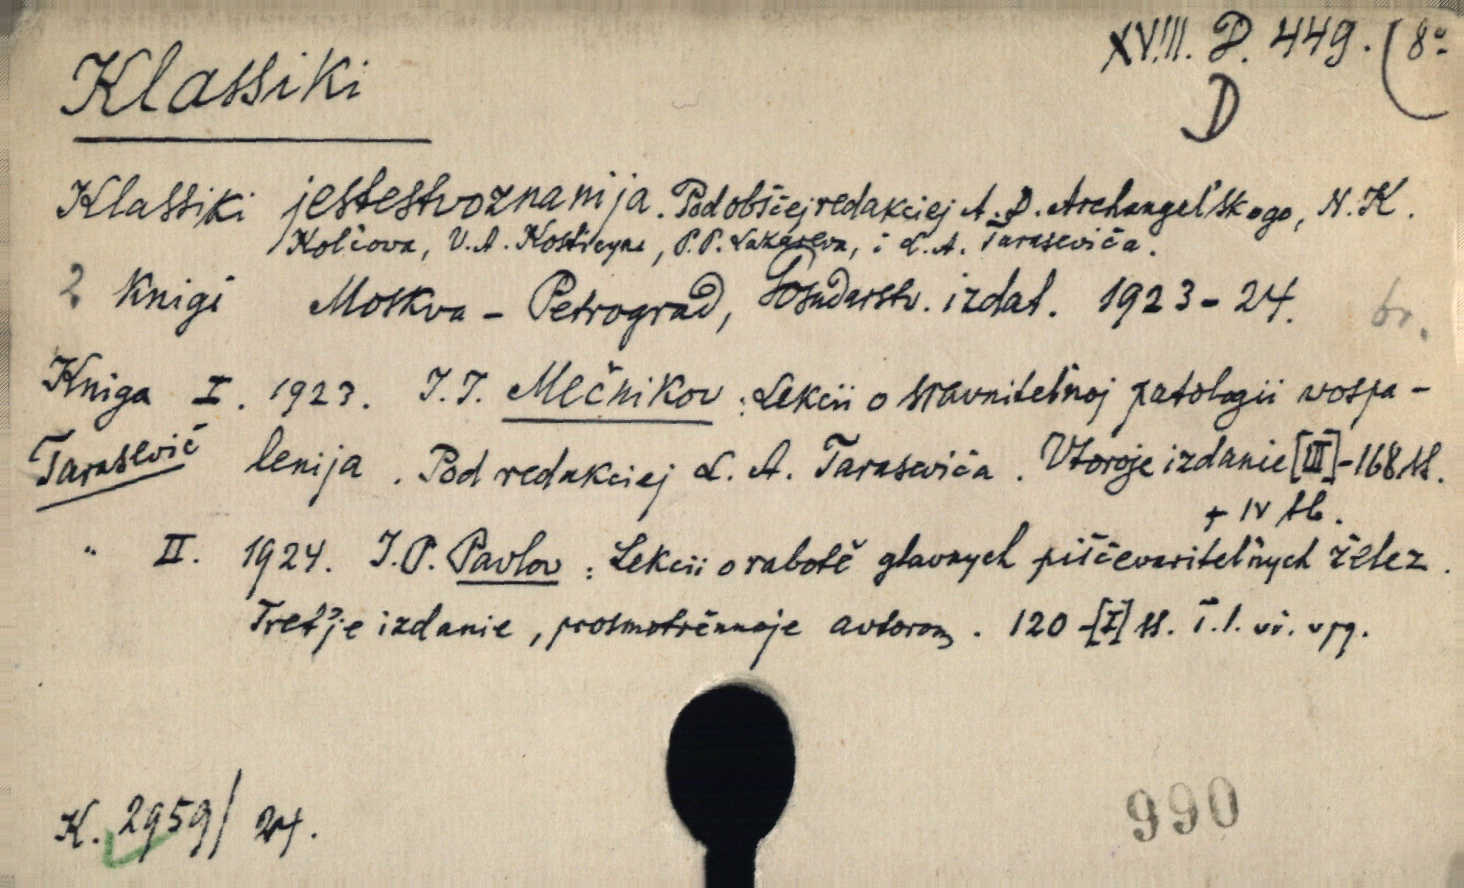 XVIII. D. 449. (8°
Klassiki
D
Klassiki jestestvoznanija. Pod obščej redakciej A. D. Archangel'skogo, N. K.
Kolčova, V. A. Kosticyna, P. P. Lazareva, i L. A. Taraseviča.
2 Knigi Moskva - Petrograd, Gosudarstv. izdat. 1923-24. br.
Kniga I. 1923. I. I. Mečnikov: Lekcii o sravnitel'noj patologii vospa-
Tarasevič lenija. Pod redakciej L. A. Taraseviča. Vtoroje izdanie [III]-168 ss.
+ IV sb.
" II. 1924. I. P. Pavlov: Lekcii o rabotě glavnych piščevaritel'nych želez.
Tret'je izdanie, prosmotrěnnoje avtorom. 120-[I] ss. i 1.
K. 2959/24.
990